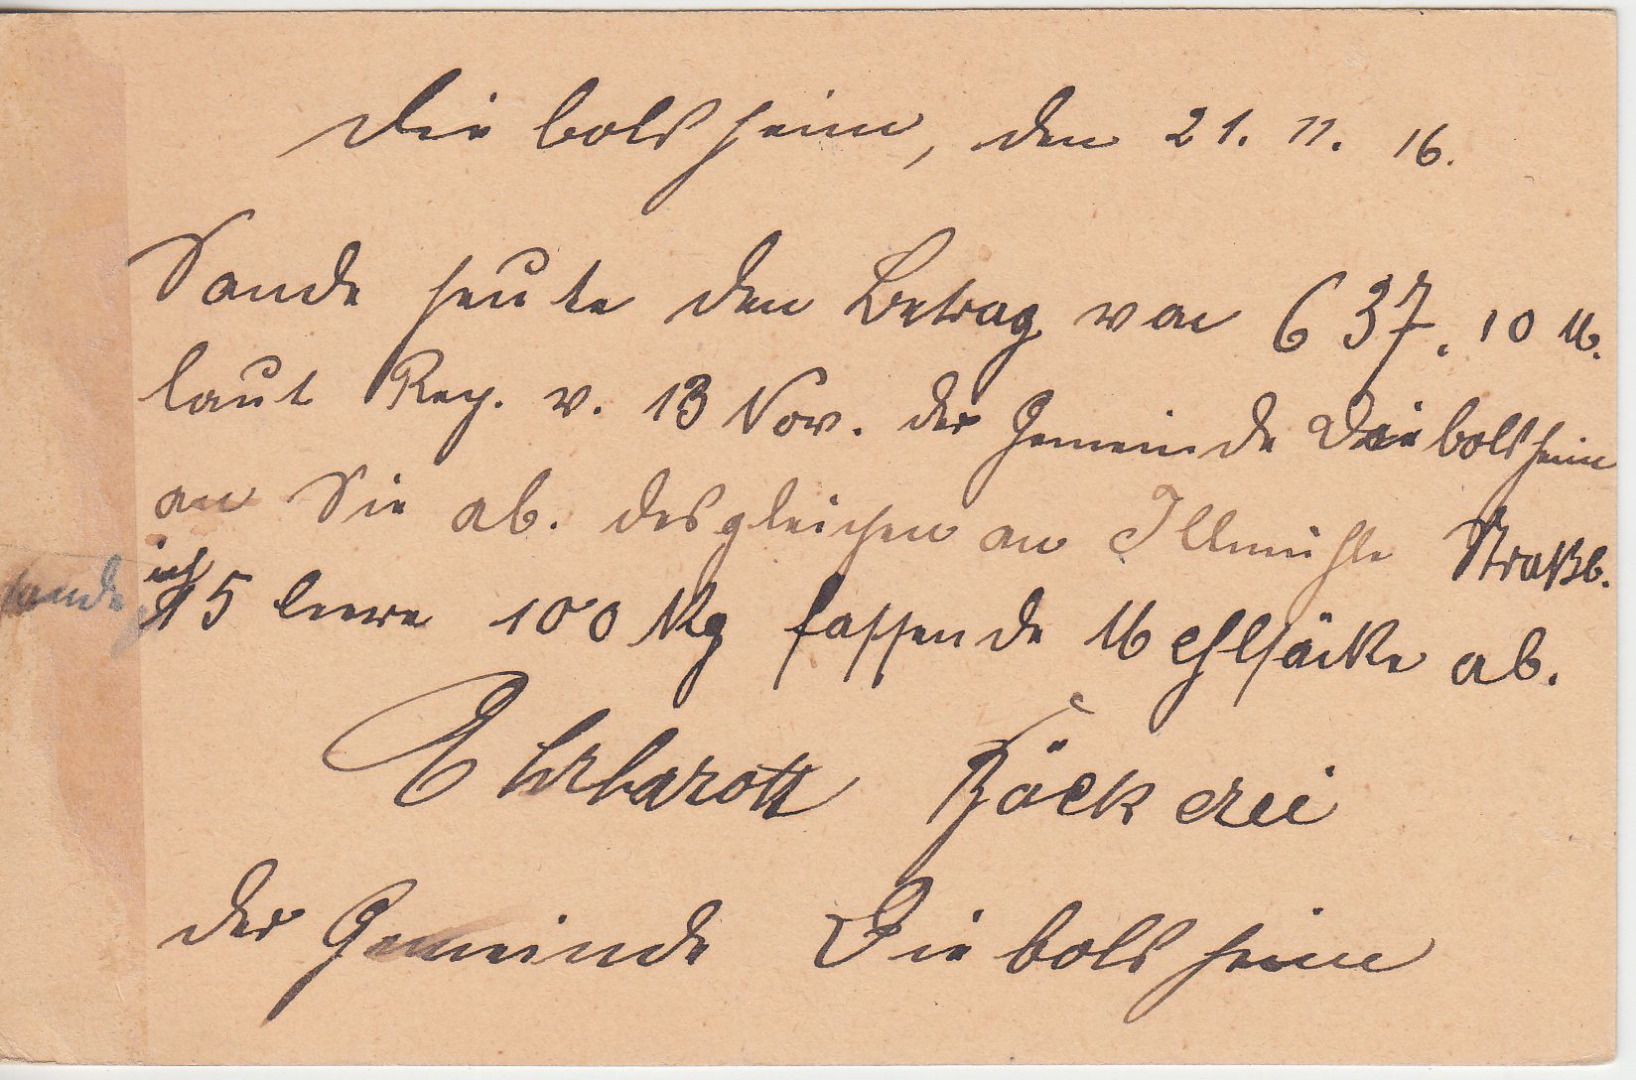 Diebolsheim, den 21. 11. 16.
Sende heute den Betrag von 637.10 M.
laut Reg. v. 13 Nov. der Gemeinde Diebolsheim
an Sie ab. desgleichen an Illmühle Straßb.
sende ich 15 leere 100 Kg fassende Mehlsäcke ab.
Ehrhardt Bäckerei
der Gemeinde Diebolsheim